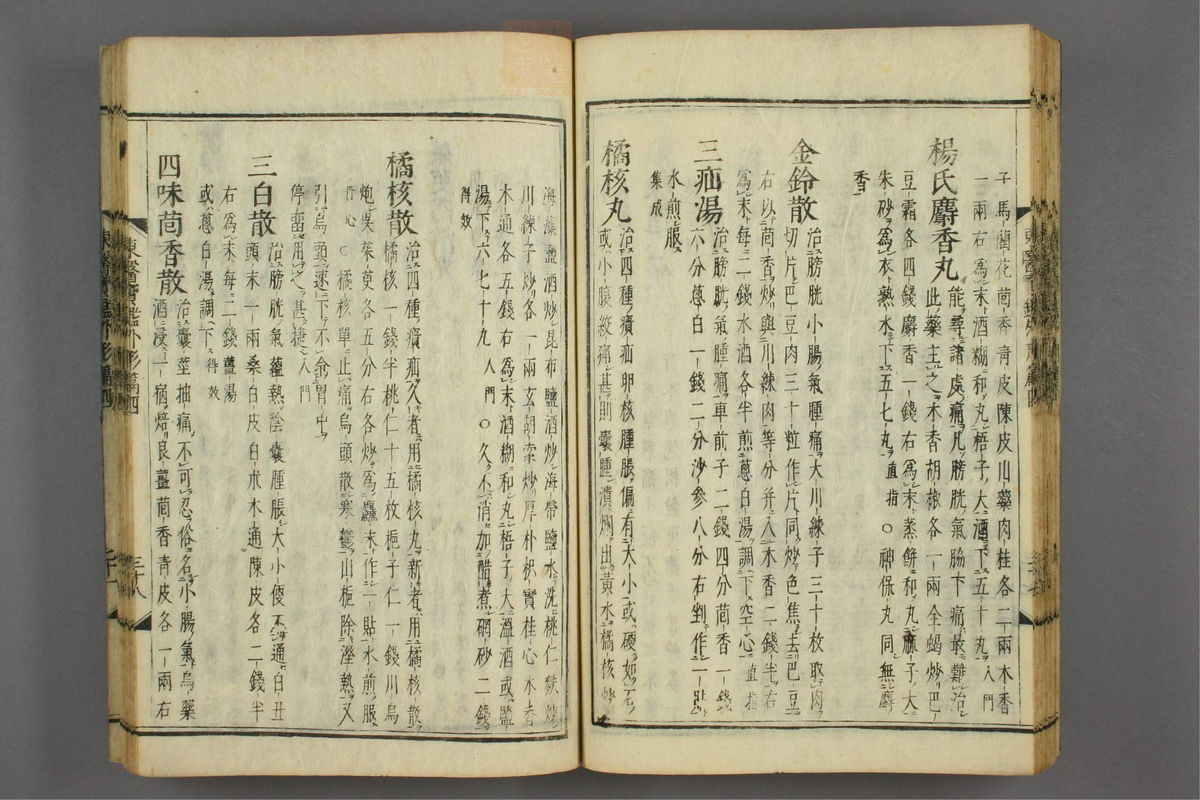 子馬藺花茴香青皮陳皮山藥肉桂各二兩木香
一兩右爲末酒糊和丸梧子大酒下五十丸入門
楊氏麝香丸
能尋諸處痛凡膀胱氣脇下痛最難治
此藥主之木香胡椒各一兩全蝎炒巴
豆霜各四錢麝香一錢右爲末蒸餅和丸麻子大
朱砂爲衣熟水下五七丸直指○神保丸同無麝
香
金鈴散
治膀胱小腸氣腫痛大川練子三十枚取肉
切片巴豆肉三十粒作片同炒色焦去巴豆
右以茴香炒與川練肉等分并入木香二錢半右
爲末每二錢水酒各半煎葱白湯調下空心直指
三疝湯
治膀胱氣腫痛車前子二錢四分茴香一錢
六分葱白一錢二分沙參八分右剉作一貼
水煎服
集成
橘核丸
治四種㿗疝卵核腫脹偏有大小或硬如石
或小腹絞痛甚則囊腫潰爛出黃水橘核炒
海藻鹽酒炒昆布鹽酒炒海帶鹽水洗桃仁麩炒
川練子炒各一兩玄胡索炒厚朴枳實桂心木香
木通各五錢右爲末酒糊和丸梧子大溫酒或鹽
湯下六七十丸入門○久不消加醋煮硇砂二錢
得效
橘核散
治四種㿗疝久者用橘核丸新者用橘核散
橘核一錢半桃仁十五枚梔子仁一錢川烏
炮吳茱萸各五分右各炒爲麤末作一貼水煎服
丹心○橘核單止痛烏頭散寒鬱山梔除濕熱又
引烏頭速下不令胃中
停留用之甚捷入門
三白散
治膀胱氣蘊熱陰囊腫脹大小便不通白丑
頭末一兩桑白皮白朮木通陳皮各二錢半
右爲末每二錢薑湯
或葱白湯調下得效
四味茴香散
治囊莖抽痛不可忍俗名小腸氣烏藥
酒浸一宿焙良薑茴香青皮各一兩右
東醫寶鑑外形篇四